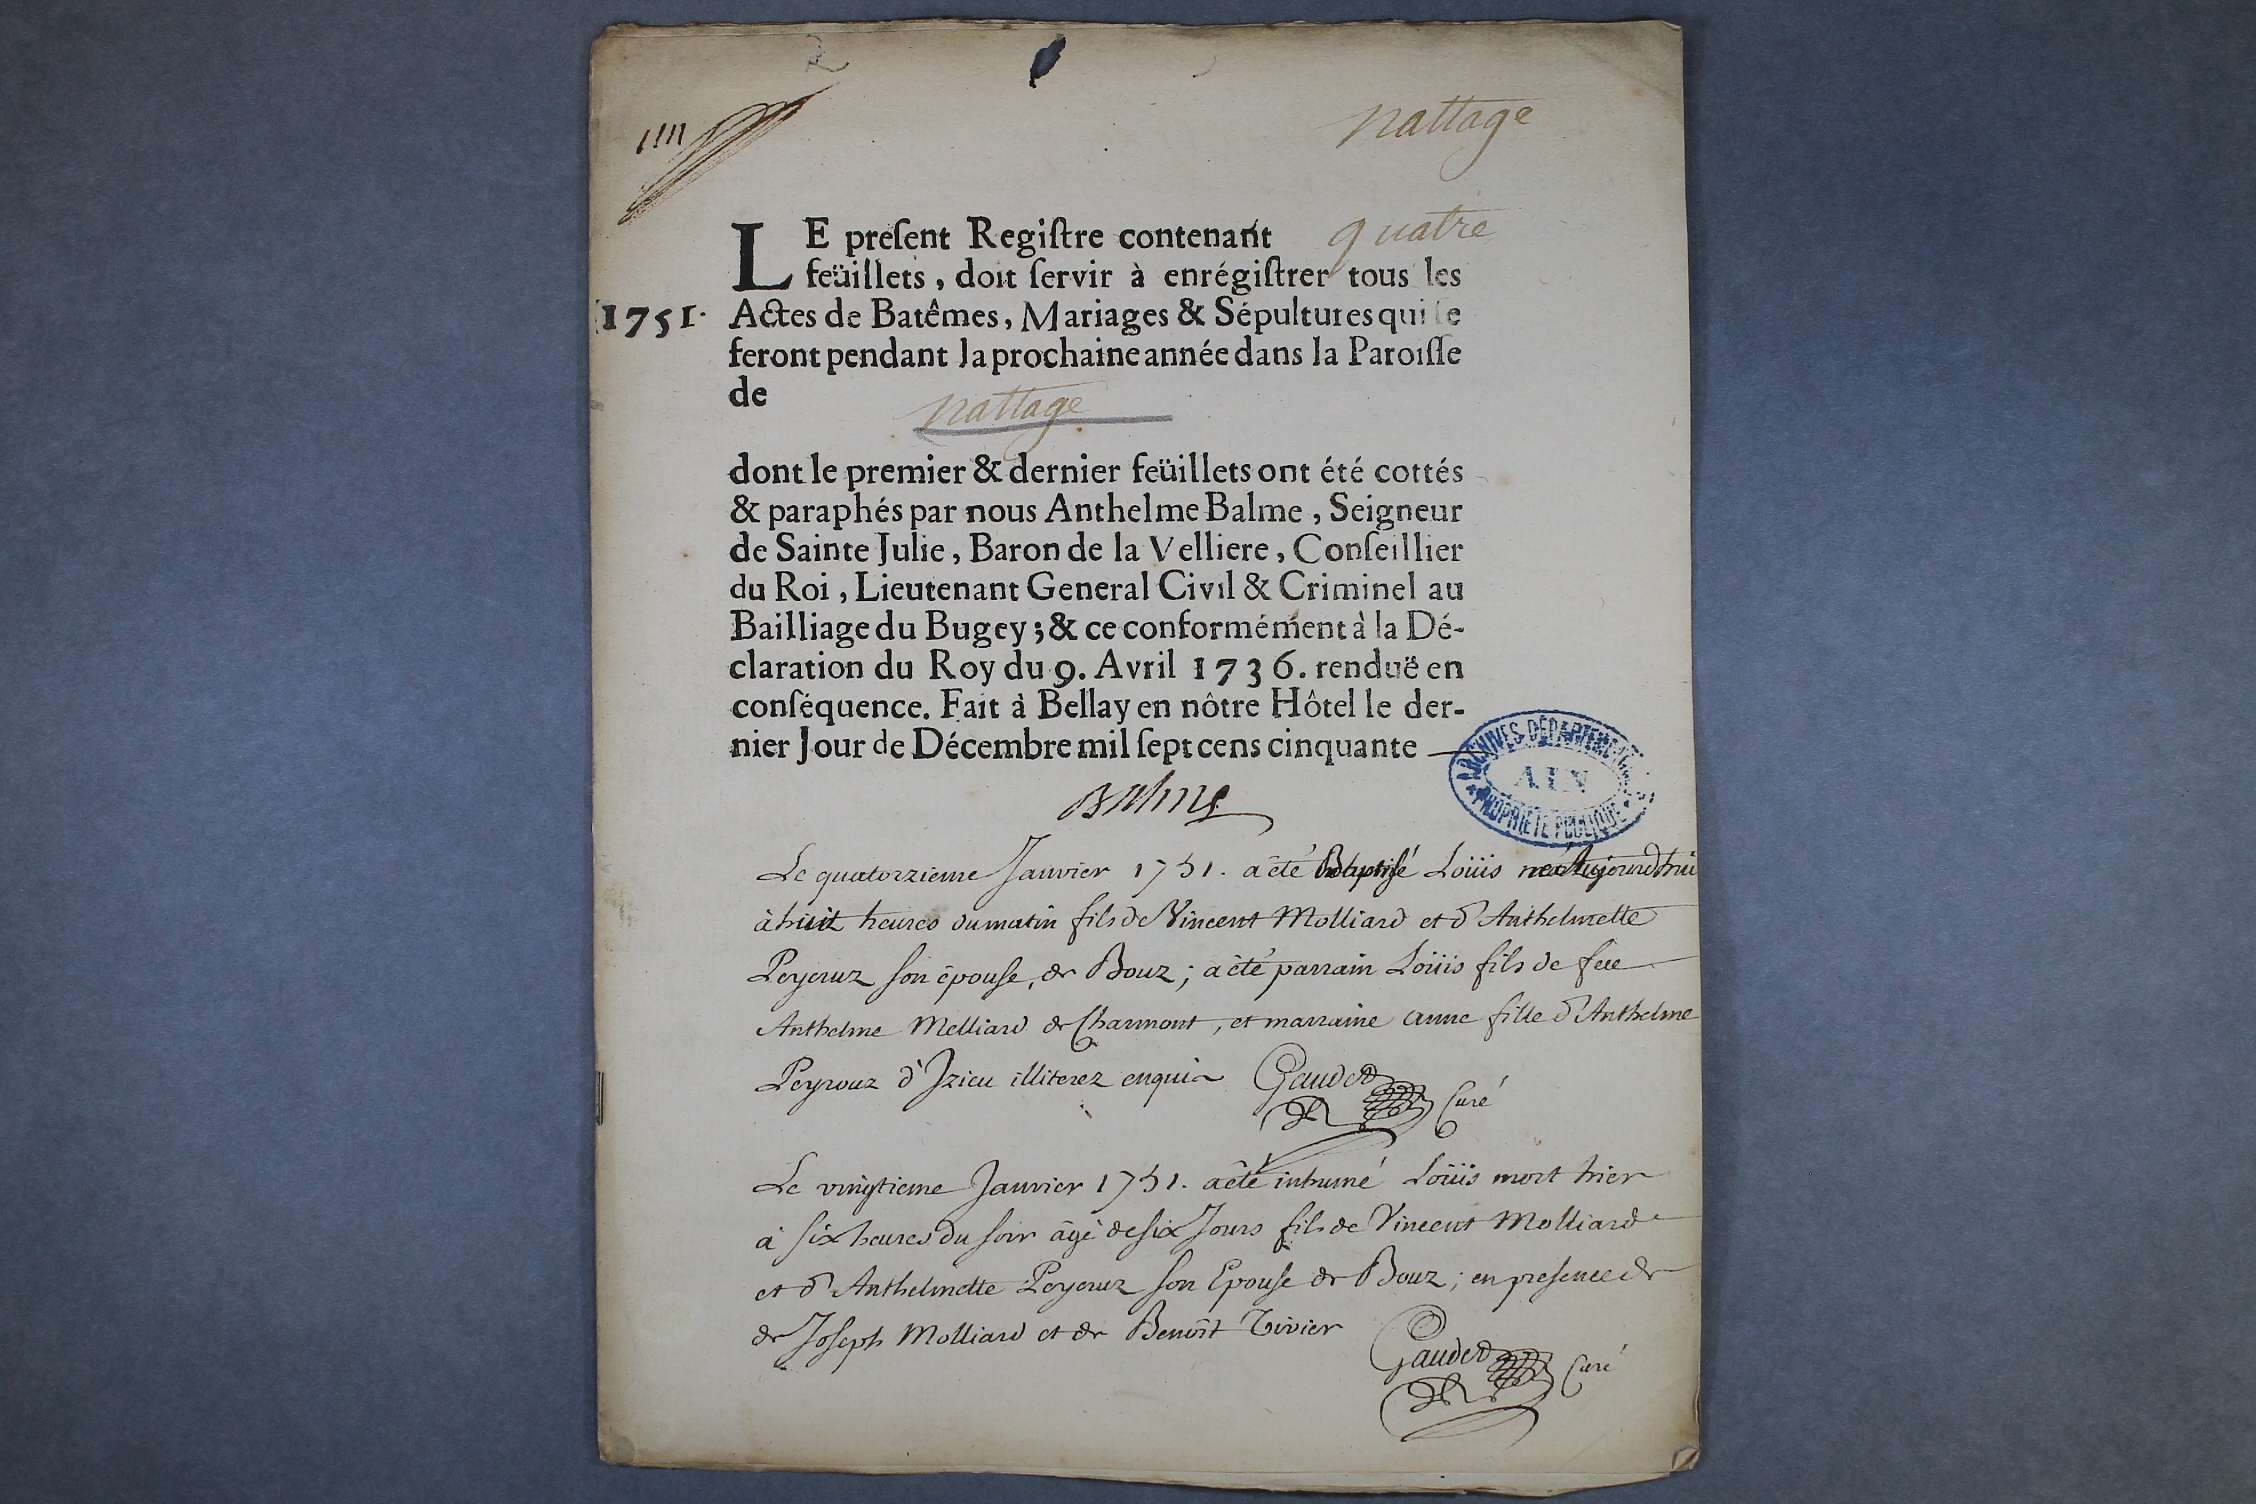 2
1111
nattage
LE preſent Regiſtre contenant quatre
feüillets, doit ſervir à enrégiſtrer tous les
1751. Actes de Batêmes, Mariages & Sépultures qui ſe
feront pendant la prochaine année dans la Paroiſſe
de
nattage
dont le premier & dernier feüillets ont été cottés
& paraphés par nous Anthelme Balme, Seigneur
de Sainte Julie, Baron de la Velliere, Conſeillier
du Roi, Lieutenant General Civil & Criminel au
Bailliage du Bugey; & ce conformément à la Dé-
claration du Roy du 9. Avril 1736. renduë en
conſéquence. Fait à Bellay en nôtre Hôtel le der-
nier Jour de Décembre mil ſept cens cinquante
ARCHIVES DÉPARTEMENTALES
AIN
PROPRIÉTÉ PUBLIQUE
Balme
Le quatorzieme Janvier 1751. a êté Baptisé Loüis né Aujourd'hui
à huit heures du matin fils de Vincent Molliard et d'Anthelmette
Peyeruz son épouse, de Bouz; a été parrain Loüis fils de feu
Anthelme Molliard de Charmont, et marraine anne fille d'Anthelme
Peyrouz d'Izieu illiterez enquis Gaudet Curé
Le vingtieme Janvier 1751. a êté inhumé Loüis mort hier
à six heures du soir âgé de six Jours fils de Vincent Molliard
et d'Anthelmette Peyeruz son Epouse de Bouz; en presence de
de Joseph Molliard et de Benoît Tivier
Gaudet Curé